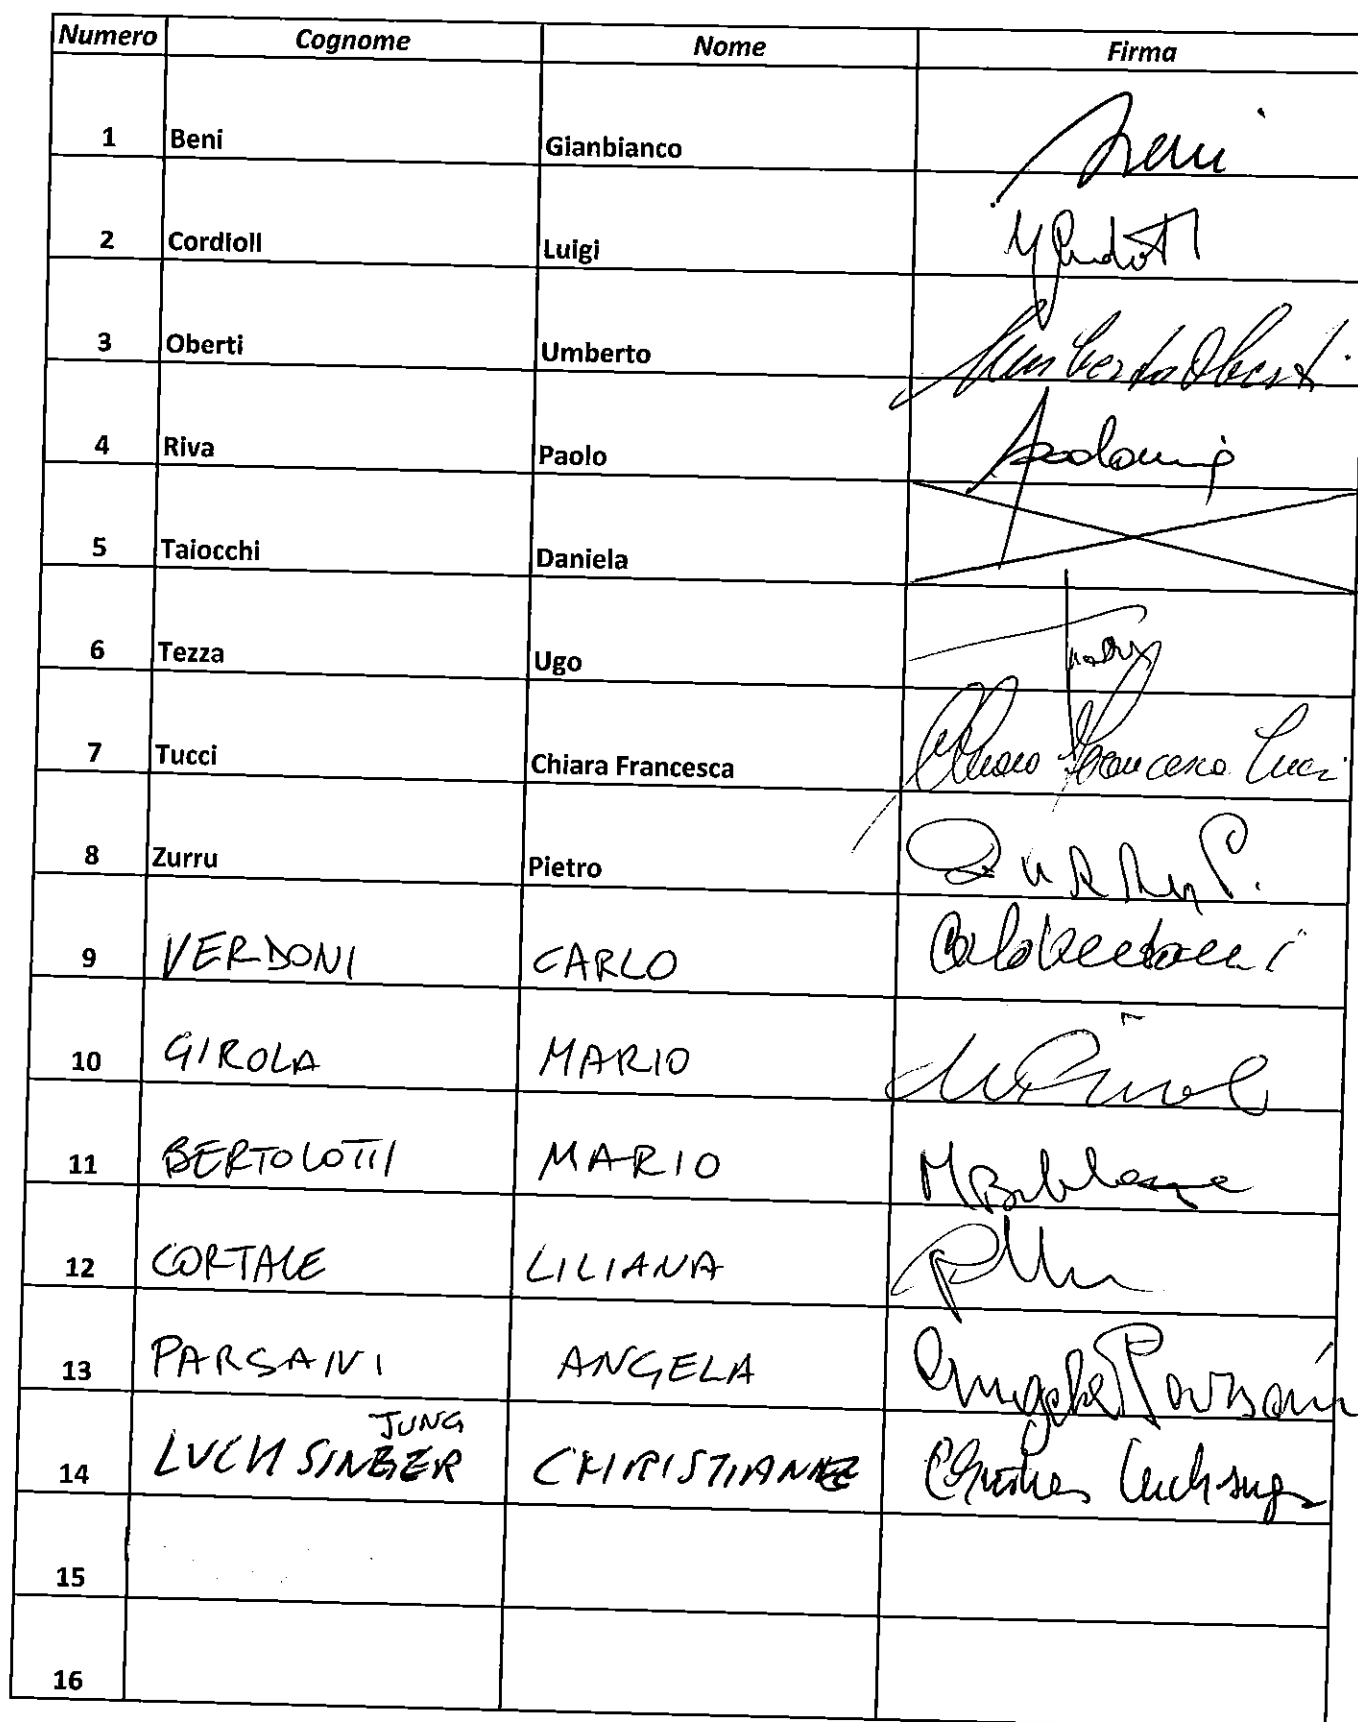 Numero Cognome Nome Firma
1 Beni Gianbianco Beni
2 Cordioli Luigi
3 Oberti Umberto Umberto Oberti
4 Riva Paolo
5 Taiocchi Daniela
6 Tezza Ugo
7 Tucci Chiara Francesca Chiara Francesca Tucci
8 Zurru Pietro Zurru P.
9 VERDONI CARLO Carlo Verdoni
10 GIROLA MARIO
11 BERTOLOTTI MARIO
12 CORTALE LILIANA
13 PARSANI ANGELA Angela Parsani
JUNG
14 LUCHSINGER CHRISTIANE
15
16